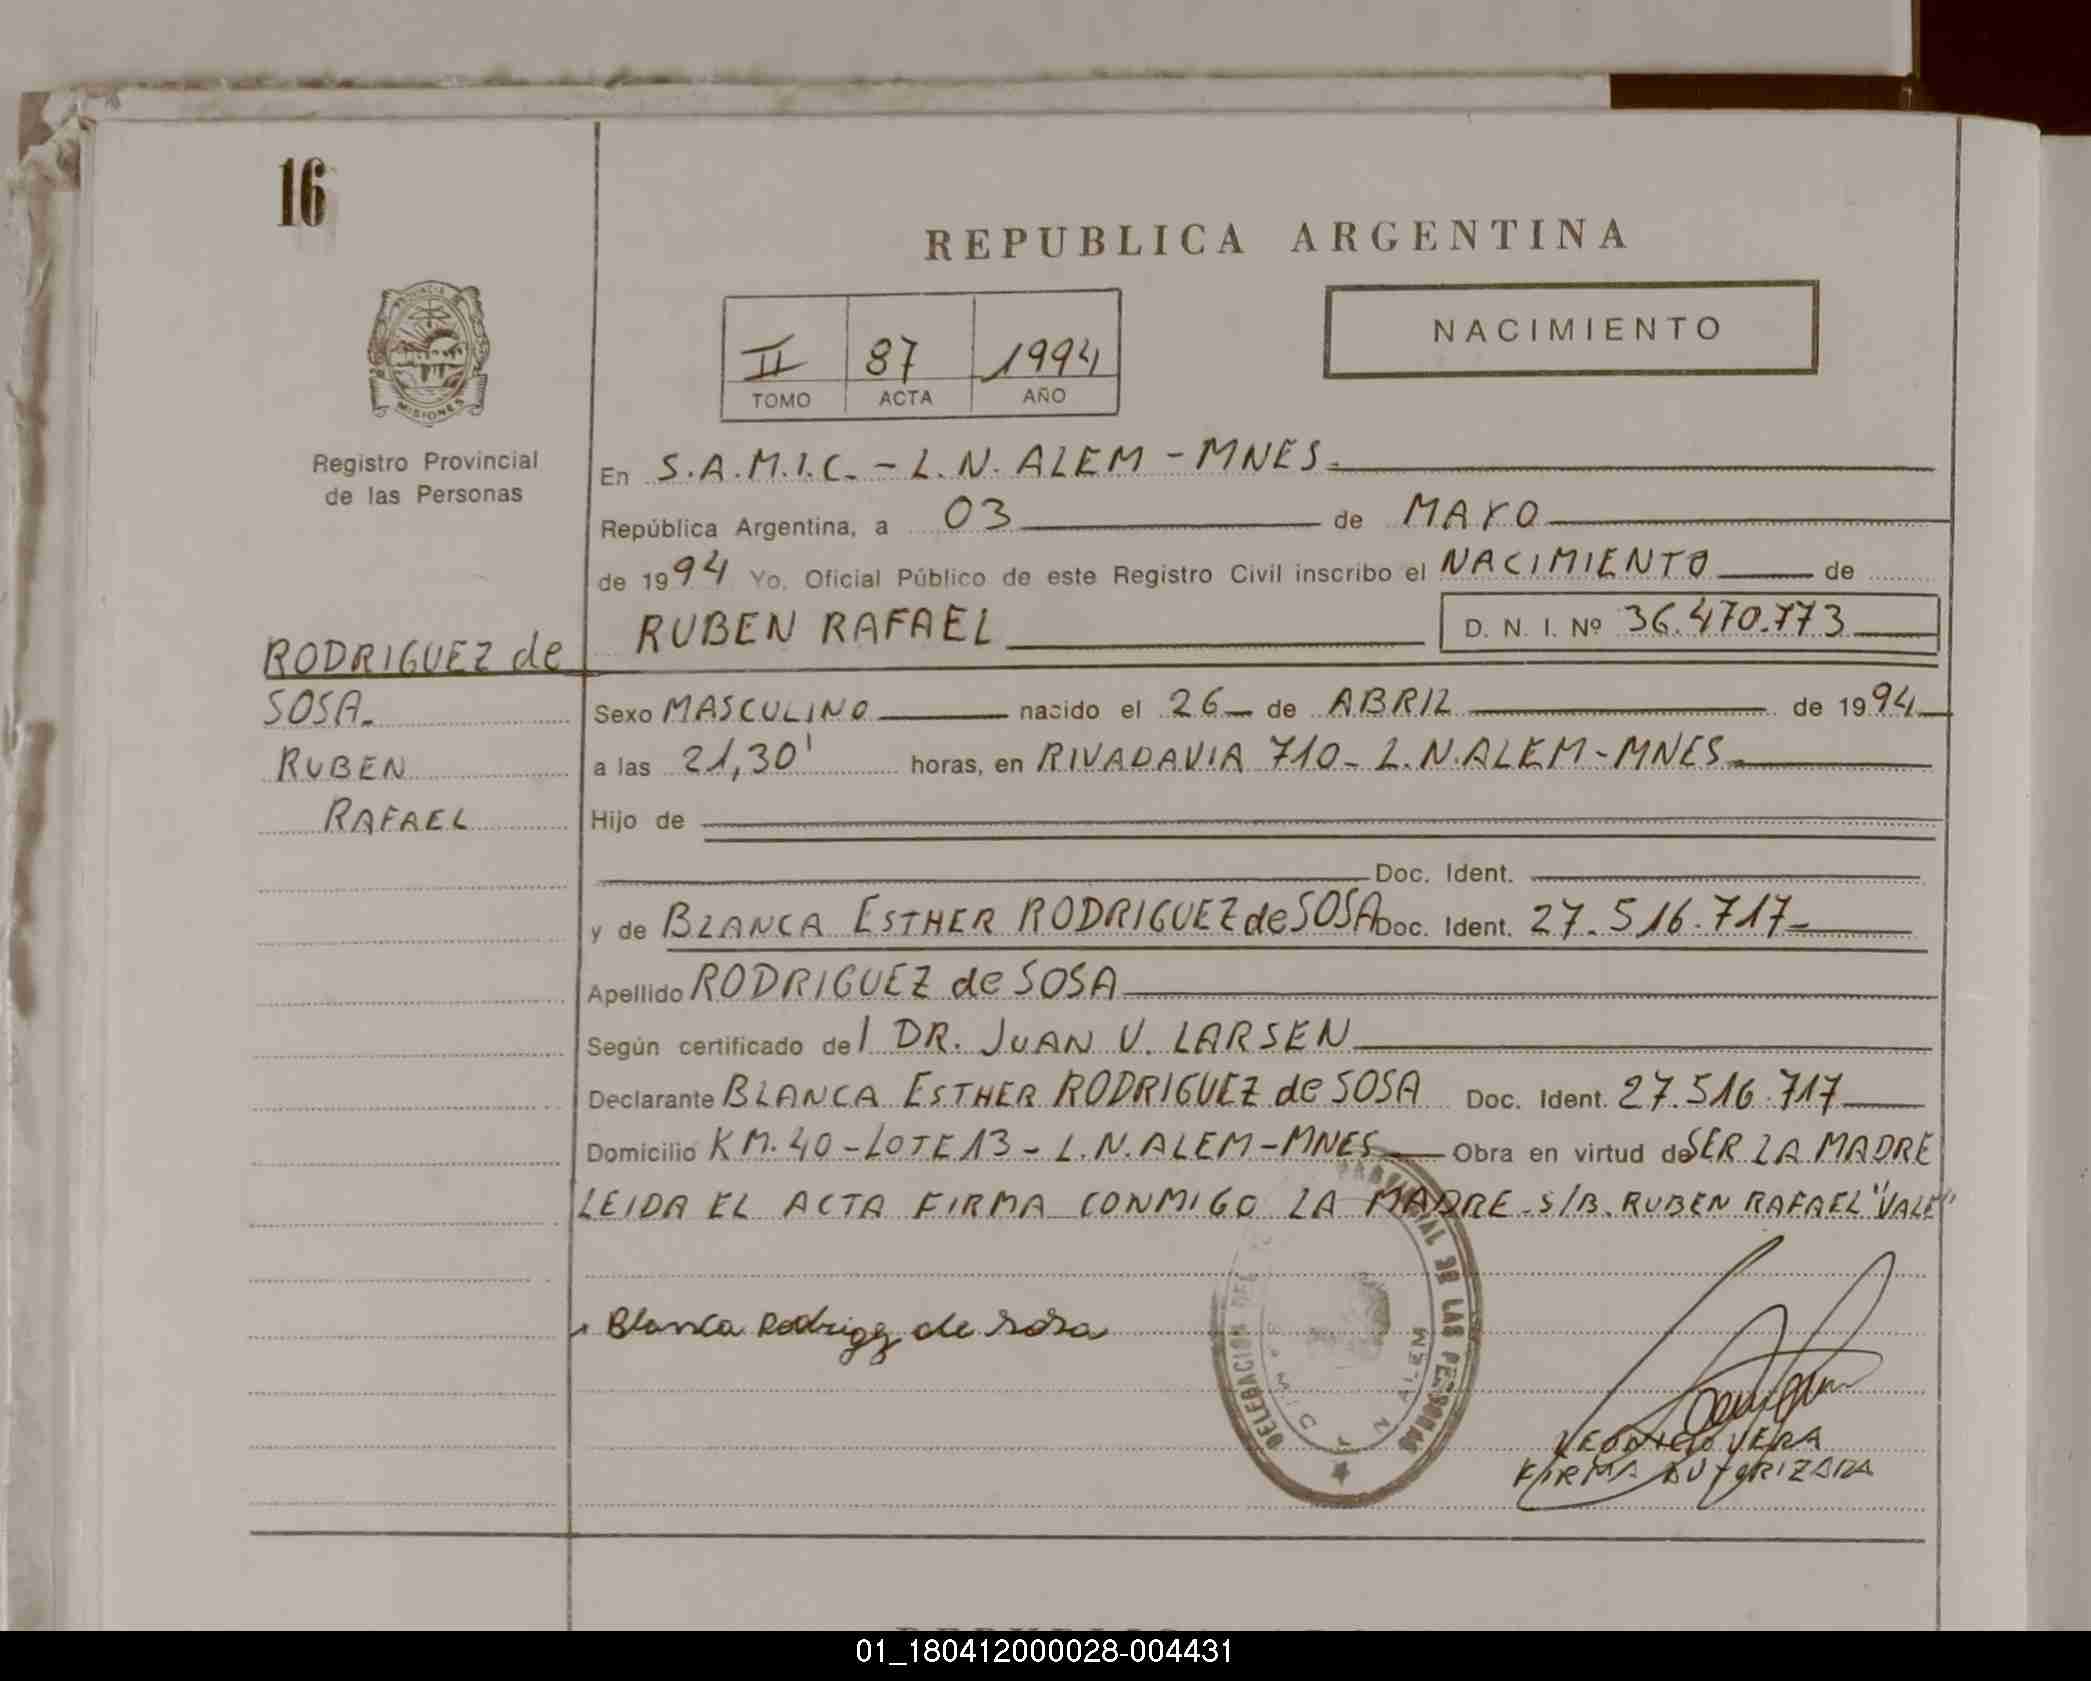 16
REPUBLICA ARGENTINA
NACIMIENTO
II 87 1994
TOMO ACTA AÑO
PROVINCIA DE
MISIONES
Registro Provincial
de las Personas
En S.A.M.I.C. - L.N. ALEM - MNES.
República Argentina, a 03 de MAYO
de 1994 Yo, Oficial Público de este Registro Civil inscribo el NACIMIENTO de
RUBEN RAFAEL D. N. I. Nº 36.470.773
RODRIGUEZ de
SOSA.
RUBEN
RAFAEL
Sexo MASCULINO nacido el 26 de ABRIL de 1994
a las 21,30' horas, en RIVADAVIA 710 - L.N.ALEM - MNES
Hijo de
Doc. Ident.
y de BLANCA ESTHER RODRIGUEZ de SOSA Doc. Ident. 27.516.717-
Apellido RODRIGUEZ de SOSA
Según certificado del DR. JUAN V. LARSEN
Declarante BLANCA ESTHER RODRIGUEZ de SOSA Doc. Ident. 27.516.717
Domicilio KM. 40 - LOTE 13 - L.N.ALEM - MNES Obra en virtud de SER LA MADRE
LEIDA EL ACTA FIRMA CONMIGO LA MADRE. S/B. RUBEN RAFAEL "VALE"
Blanca Rodrigz de Sosa
DELEGACION DEL PROVINCIAL DE LAS PERSONAS
L. N. ALEM
VERA
FIRMA AUTORIZADA
01_180412000028-004431